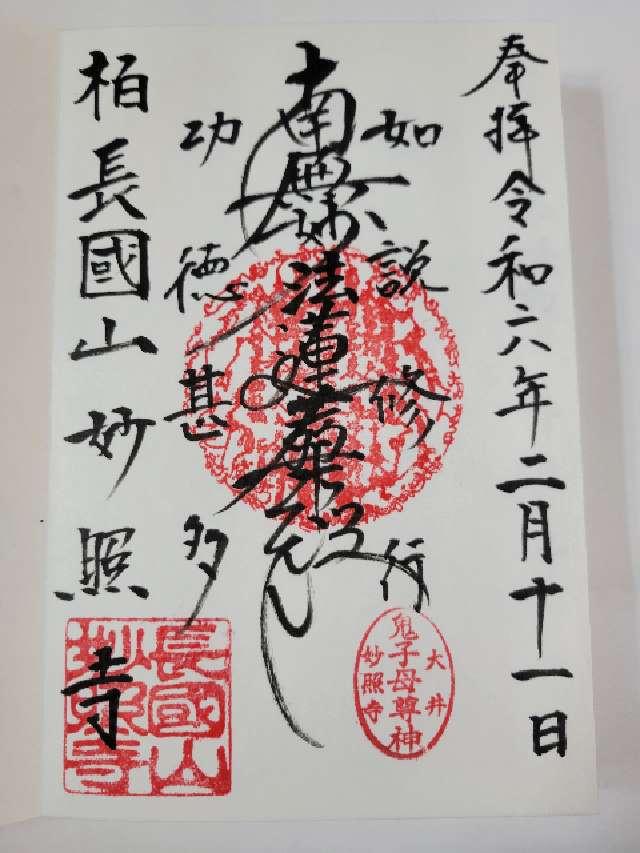 奉拝令和六年二月十一日
如説修行
南無妙法蓮華経
功徳甚多
柏長國山妙照寺
大井
鬼子母尊神
妙照寺
長國山
妙照寺